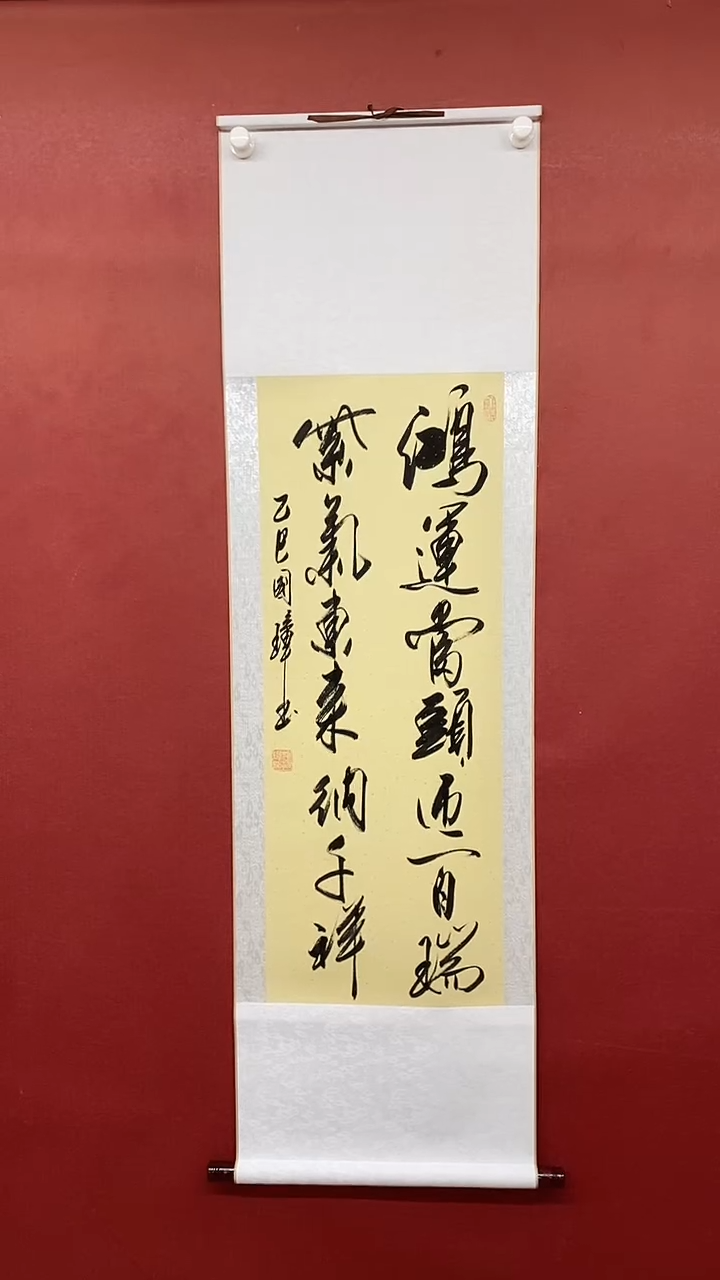 鴻運當頭迎百瑞
紫氣東來納千祥
乙巳國瑋書